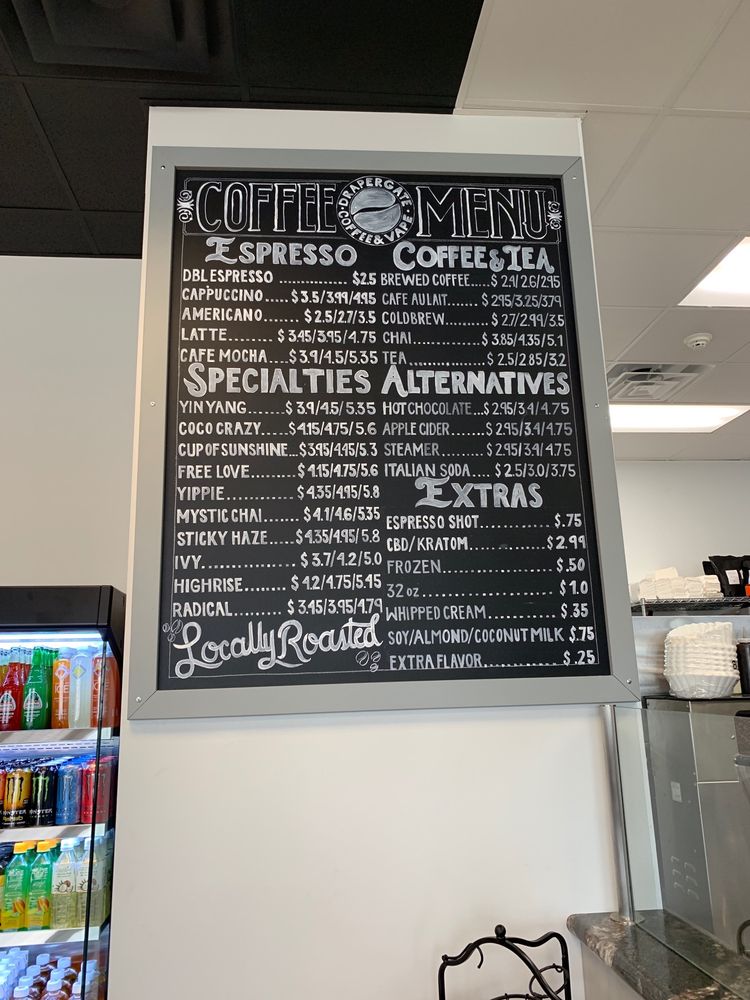 COFFEE DRAPERGATE COFFEE & VAPE MENU
ESPRESSO
DBL ESPRESSO .............. $2.5
CAPPUCCINO..... $3.5/3.99/4.95
AMERICANO....... $2.5/2.7/3.5
LATTE........ $3.45/3.95/4.75
CAFE MOCHA....$3.9/4.5/5.35
SPECIALTIES
YIN YANG......$3.9/4.5/5.35
COCO CRAZY.....$4.15/4.75/5.6
CUP OF SUNSHINE...$3.95/4.45/5.3
FREE LOVE....... $4.15/4.75/5.6
YIPPIE........... $4.35/4.95/5.8
MYSTIC CHAI...... $4.1/4.6/5.35
STICKY HAZE.....$4.35/4.95/5.8
IVY................ $3.7/4.2/5.0
HIGHRISE........ $4.2/4.75/5.45
RADICAL........ $3.45/3.95/4.79
Locally Roasted
COFFEE & TEA
BREWED COFFEE.....$2.4/2.6/2.95
CAFE AU LAIT...... $2.95/3.25/3.79
COLDBREW......... $2.7/2.99/3.5
CHAI.............. $3.85/4.35/5.1
TEA................ $2.5/2.85/3.2
ALTERNATIVES
HOT CHOCOLATE...$2.95/3.4/4.75
APPLE CIDER......$2.95/3.4/4.75
STEAMER.......... $2.95/3.4/4.75
ITALIAN SODA.... $2.5/3.0/3.75
EXTRAS
ESPRESSO SHOT............ $.75
CBD/KRATOM............. $2.99
FROZEN.................... $.50
32 oz ...................... $1.0
WHIPPED CREAM.......... $.35
SOY/ALMOND/COCONUT MILK $.75
EXTRA FLAVOR............. $.25